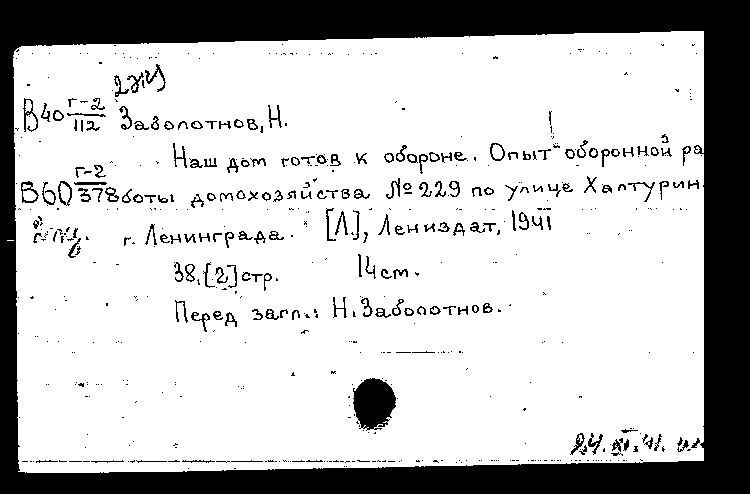 2 экз
В40 Г-2/112 Заболотнов, Н.
Наш дом готов к обороне. Опыт оборонной ра
В60 Г-2/378 боты домохозяйства №229 по улице Халтурин
г. Ленинграда. [Л], Лениздат, 1941
38,[2]стр. 14см.
Перед загл.: Н.Заболотнов.
24.XI.41.